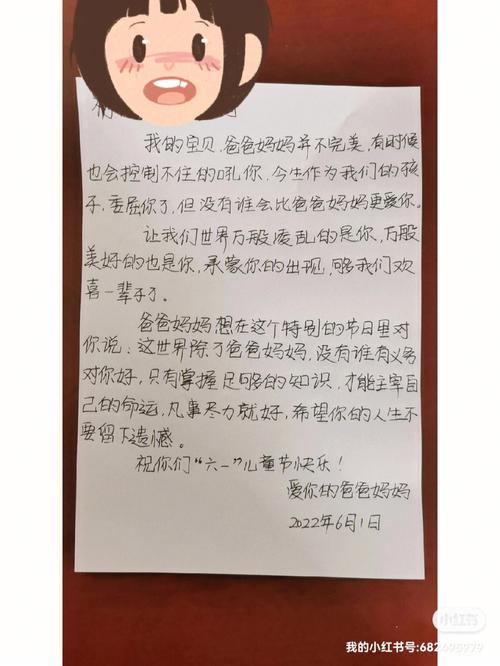 我的宝贝，爸爸妈妈并不完美，有时候
也会控制不住的吼你，今生作为我们的孩
子，委屈你了，但没有谁会比爸爸妈妈更爱你。
让我们世界万般凌乱的是你，万般
美好的也是你，承蒙你的出现，够我们欢
喜一辈子了。
爸爸妈妈想在这个特别的节日里对
你说：这世界除了爸爸妈妈，没有谁有义务
对你好，只有掌握足够的知识，才能主宰自
己的命运，凡事尽力就好，希望你的人生不
要留下遗憾。
祝你们“六一”儿童节快乐！
爱你的爸爸妈妈
2022年6月1日
小红书
我的小红书号:682695979